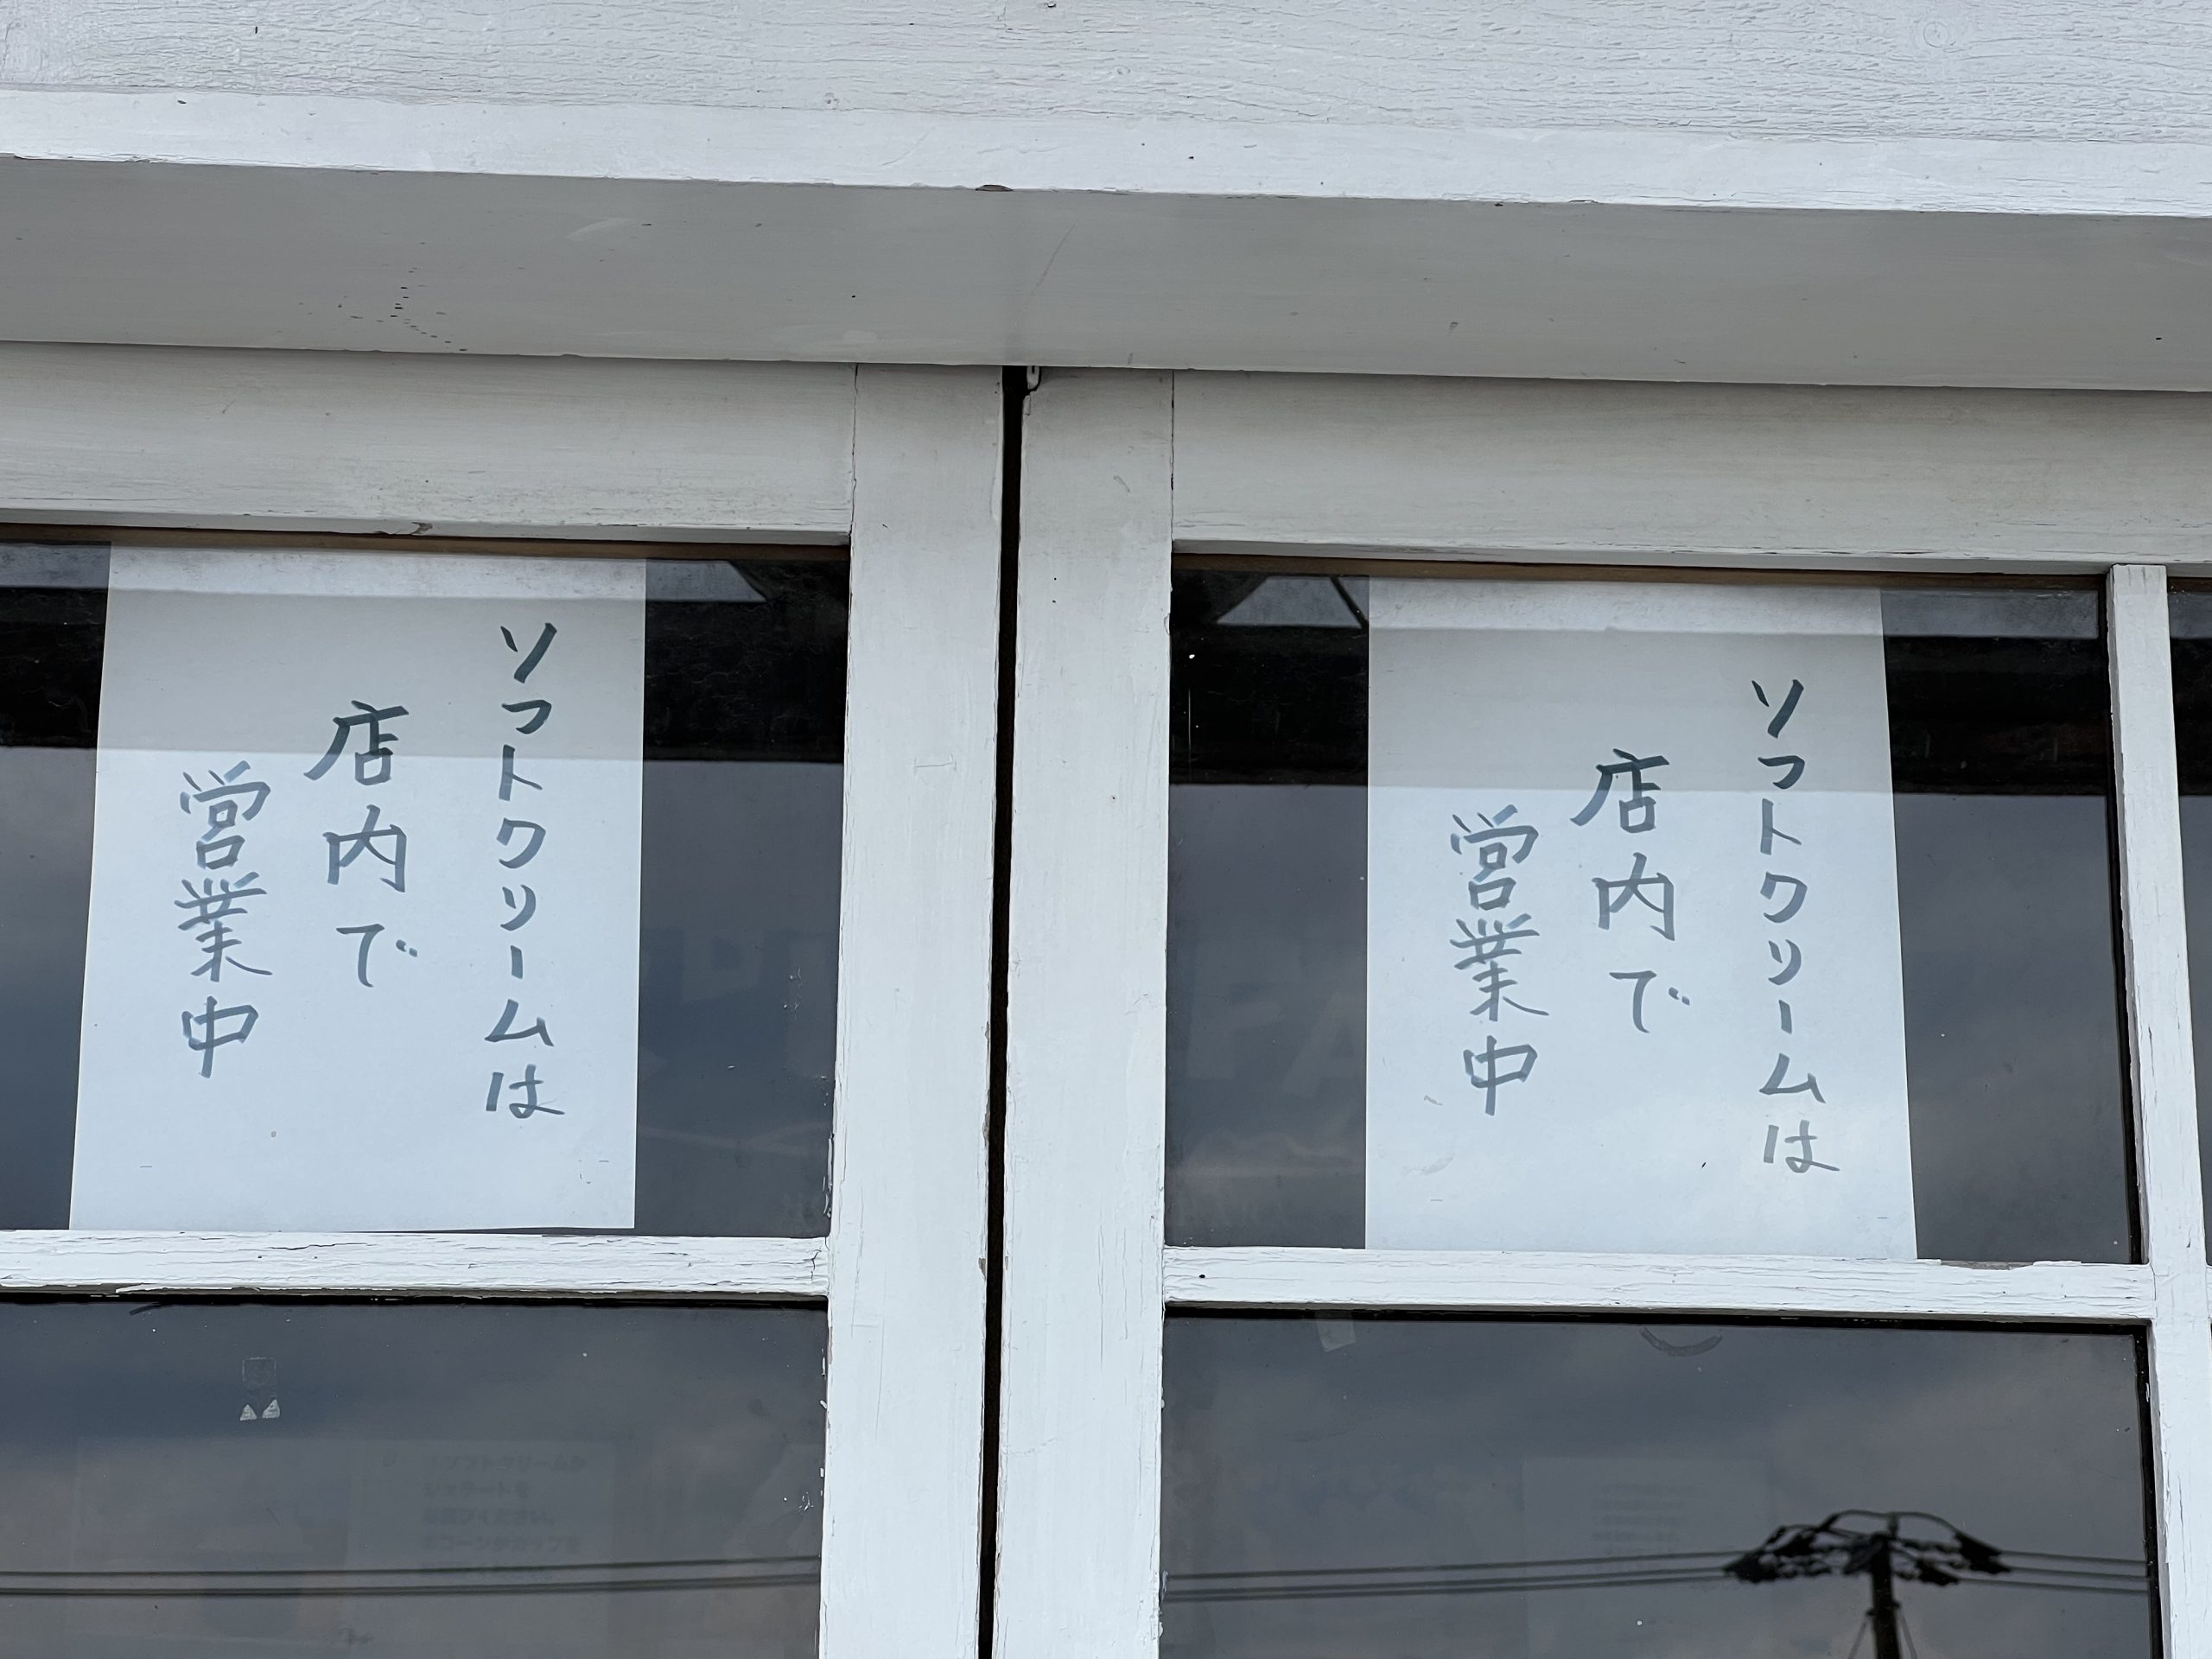 ソフトクリームは
店内で
営業中
ソフトクリームは
店内で
営業中